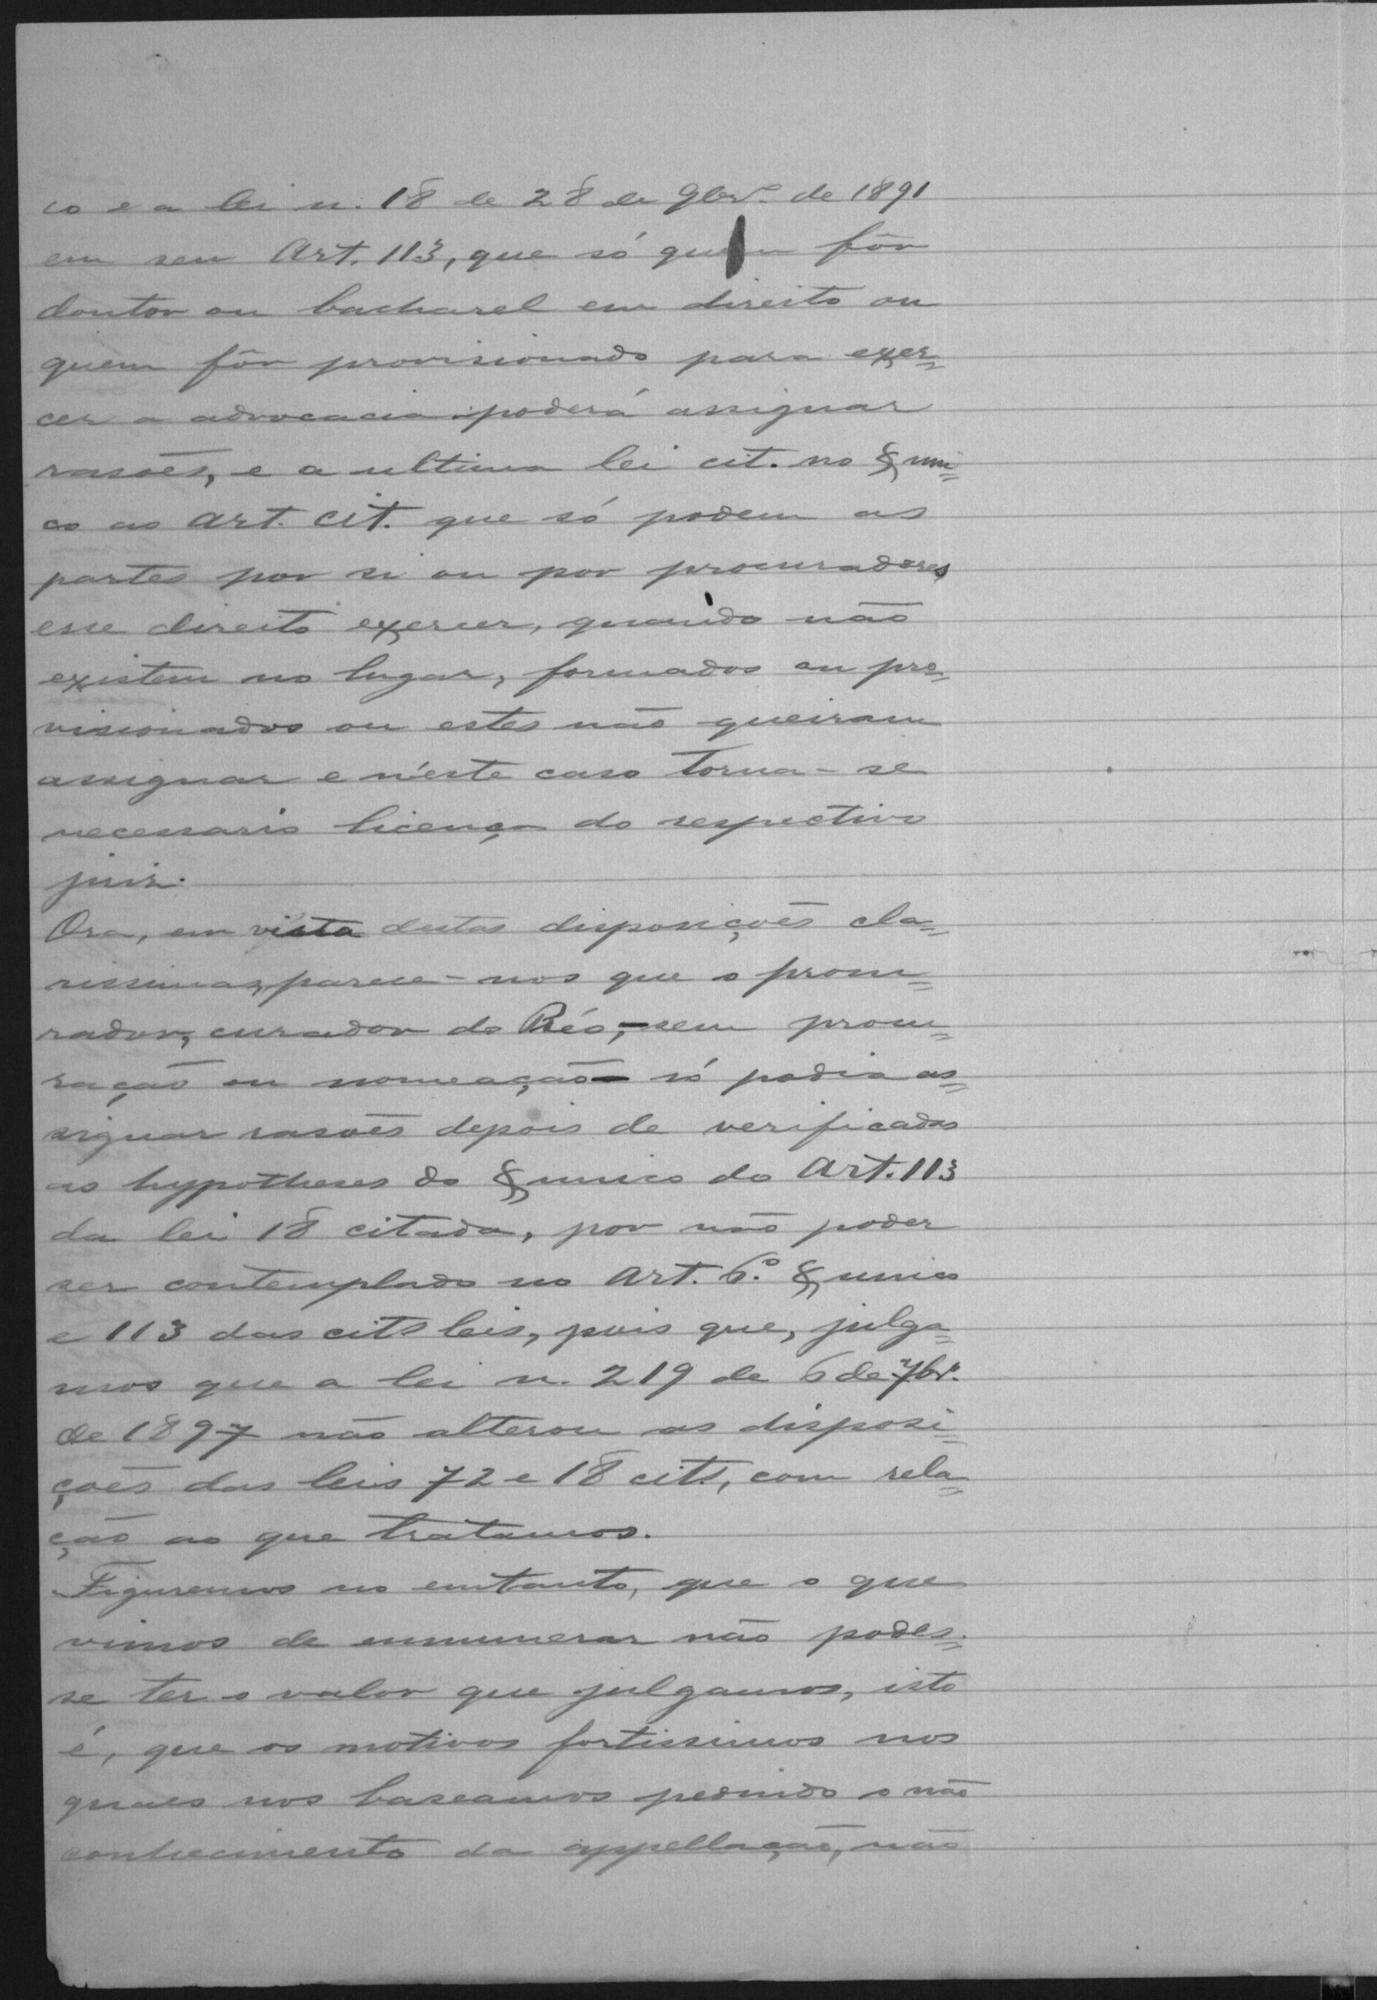 co e a lei n. 18 de 28 de 9brº de 1891
em seu Art. 113, que só quem fôr
doutor ou bacharel em direito ou
quem fôr provisionado para exer=
cer a advocacia poderá assignar
rasões, e a ultima lei cit. no § uni=
co ao art. cit. que só podem as
partes por si ou por procuradores
esse direito exercer, quando não
existem no lugar, formados ou pro=
visionados ou estes não queiram
assignar e n'este caso torna-se
necessario licença do respectivo
juiz.
Ora, em vista destas disposições cla=
rissimas, parece-nos que o procu=
rador, curador do Réo, - sem procu=
ração ou nomeação - só podia as=
signar rasões depois de verificadas
as hypotheses do § unico do Art. 113
da lei 18 citada, por não poder
ser contemplado no Art. 6.º § unico
e 113 das cits leis, pois que, julga=
mos que a lei n. 219 de 6 de 7br.º
de 1897 não alterou as disposi=
ções das leis 72 e 18 cits, com rela=
ção ao que tratamos.
Figuremos no emtanto, que o que
vimos de ennumerar não podes=
se ter o valor que julgamos, isto
é, que os motivos fortissimos nos
quaes nos baseamos pedindo o não
conhecimento da appellação, não